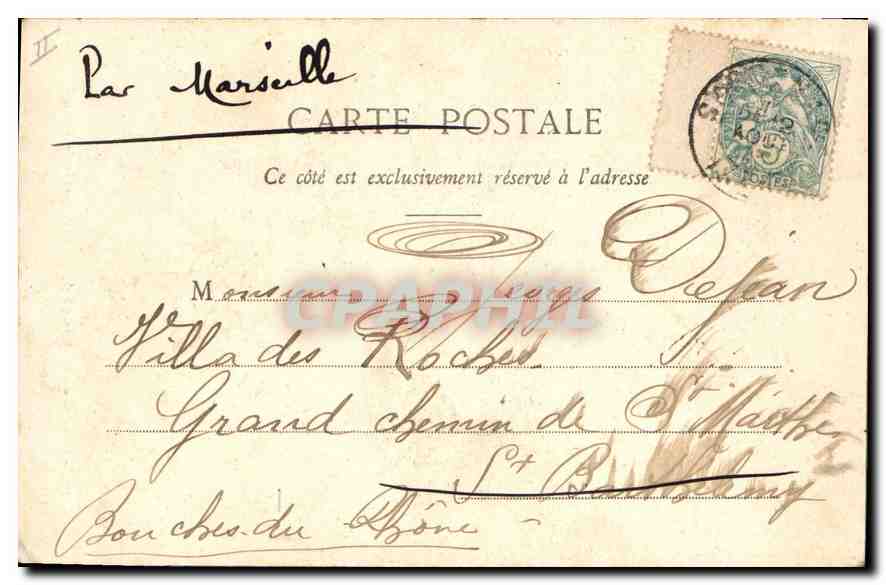 II
Par Marseille
CARTE POSTALE
Ce côté est exclusivement réservé à l'adresse
Monsieur Dejean
Villa des Roches
Grand chemin de St Marthe
St Barthélemy
Bouches-du-Rhône
POSTES
CPAPHIL